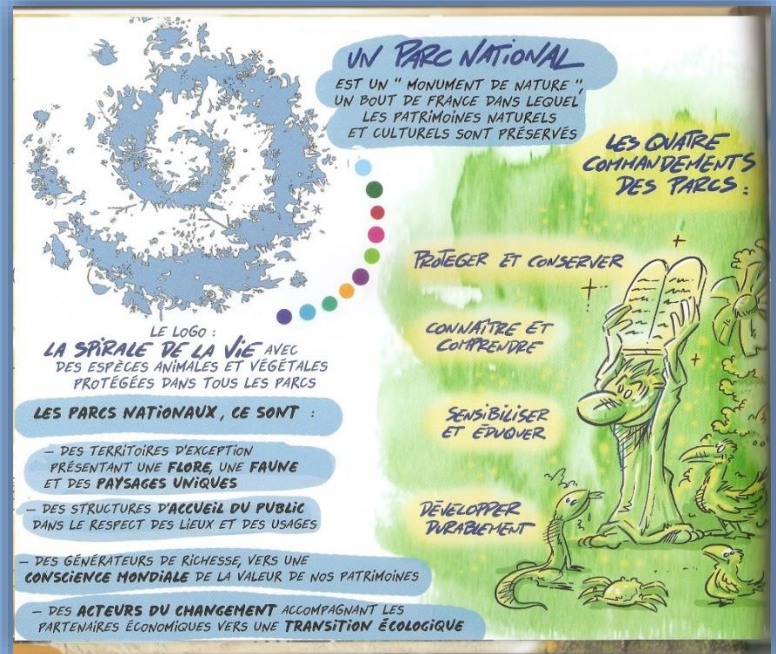 UN PARC NATIONAL
EST UN " MONUMENT DE NATURE ",
UN BOUT DE FRANCE DANS LEQUEL
LES PATRIMOINES NATURELS
ET CULTURELS SONT PRÉSERVÉS
LE LOGO :
LA SPIRALE DE LA VIE AVEC
DES ESPÈCES ANIMALES ET VÉGÉTALES
PROTÉGÉES DANS TOUS LES PARCS
LES PARCS NATIONAUX, CE SONT :
– DES TERRITOIRES D'EXCEPTION
PRÉSENTANT UNE FLORE, UNE FAUNE
ET DES PAYSAGES UNIQUES
– DES STRUCTURES D'ACCUEIL DU PUBLIC
DANS LE RESPECT DES LIEUX ET DES USAGES
– DES GÉNÉRATEURS DE RICHESSE, VERS UNE
CONSCIENCE MONDIALE DE LA VALEUR DE NOS PATRIMOINES
– DES ACTEURS DU CHANGEMENT ACCOMPAGNANT LES
PARTENAIRES ÉCONOMIQUES VERS UNE TRANSITION ÉCOLOGIQUE
LES QUATRE
COMMANDEMENTS
DES PARCS :
PROTEGER ET CONSERVER
CONNAÎTRE ET
COMPRENDRE
SENSIBILISER
ET ÉDUQUER
DÉVELOPPER
DURABLEMENT